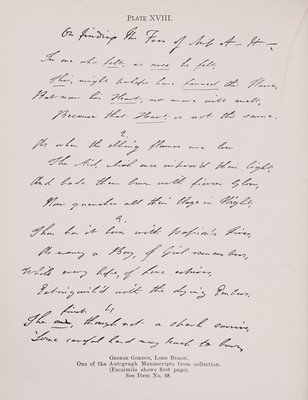 PLATE XVIII.
On finding the Fan of Miss A— H—
In one who felt, as once he felt,
This, might perhaps have fanned the Flame,
But now his Heart, no more will melt,
Because that Heart, is not the same.
2.
As when the ebbing flames are low
The Aid, which once improv'd their light,
And bade them burn with fiercer Glow,
Now quenches all their blaze in Night.
3.
Thus has it been with Passion's Fires,
As many a Boy, & Girl remembers,
While every hope, of love expires,
Extinguish'd with the dying Embers.
4.
The first, though not a spark survive,
Some careful hand may teach to burn,
GEORGE GORDON, LORD BYRON.
One of the Autograph Manuscripts from collection.
(Facsimile shows first page).
See Item No. 68.